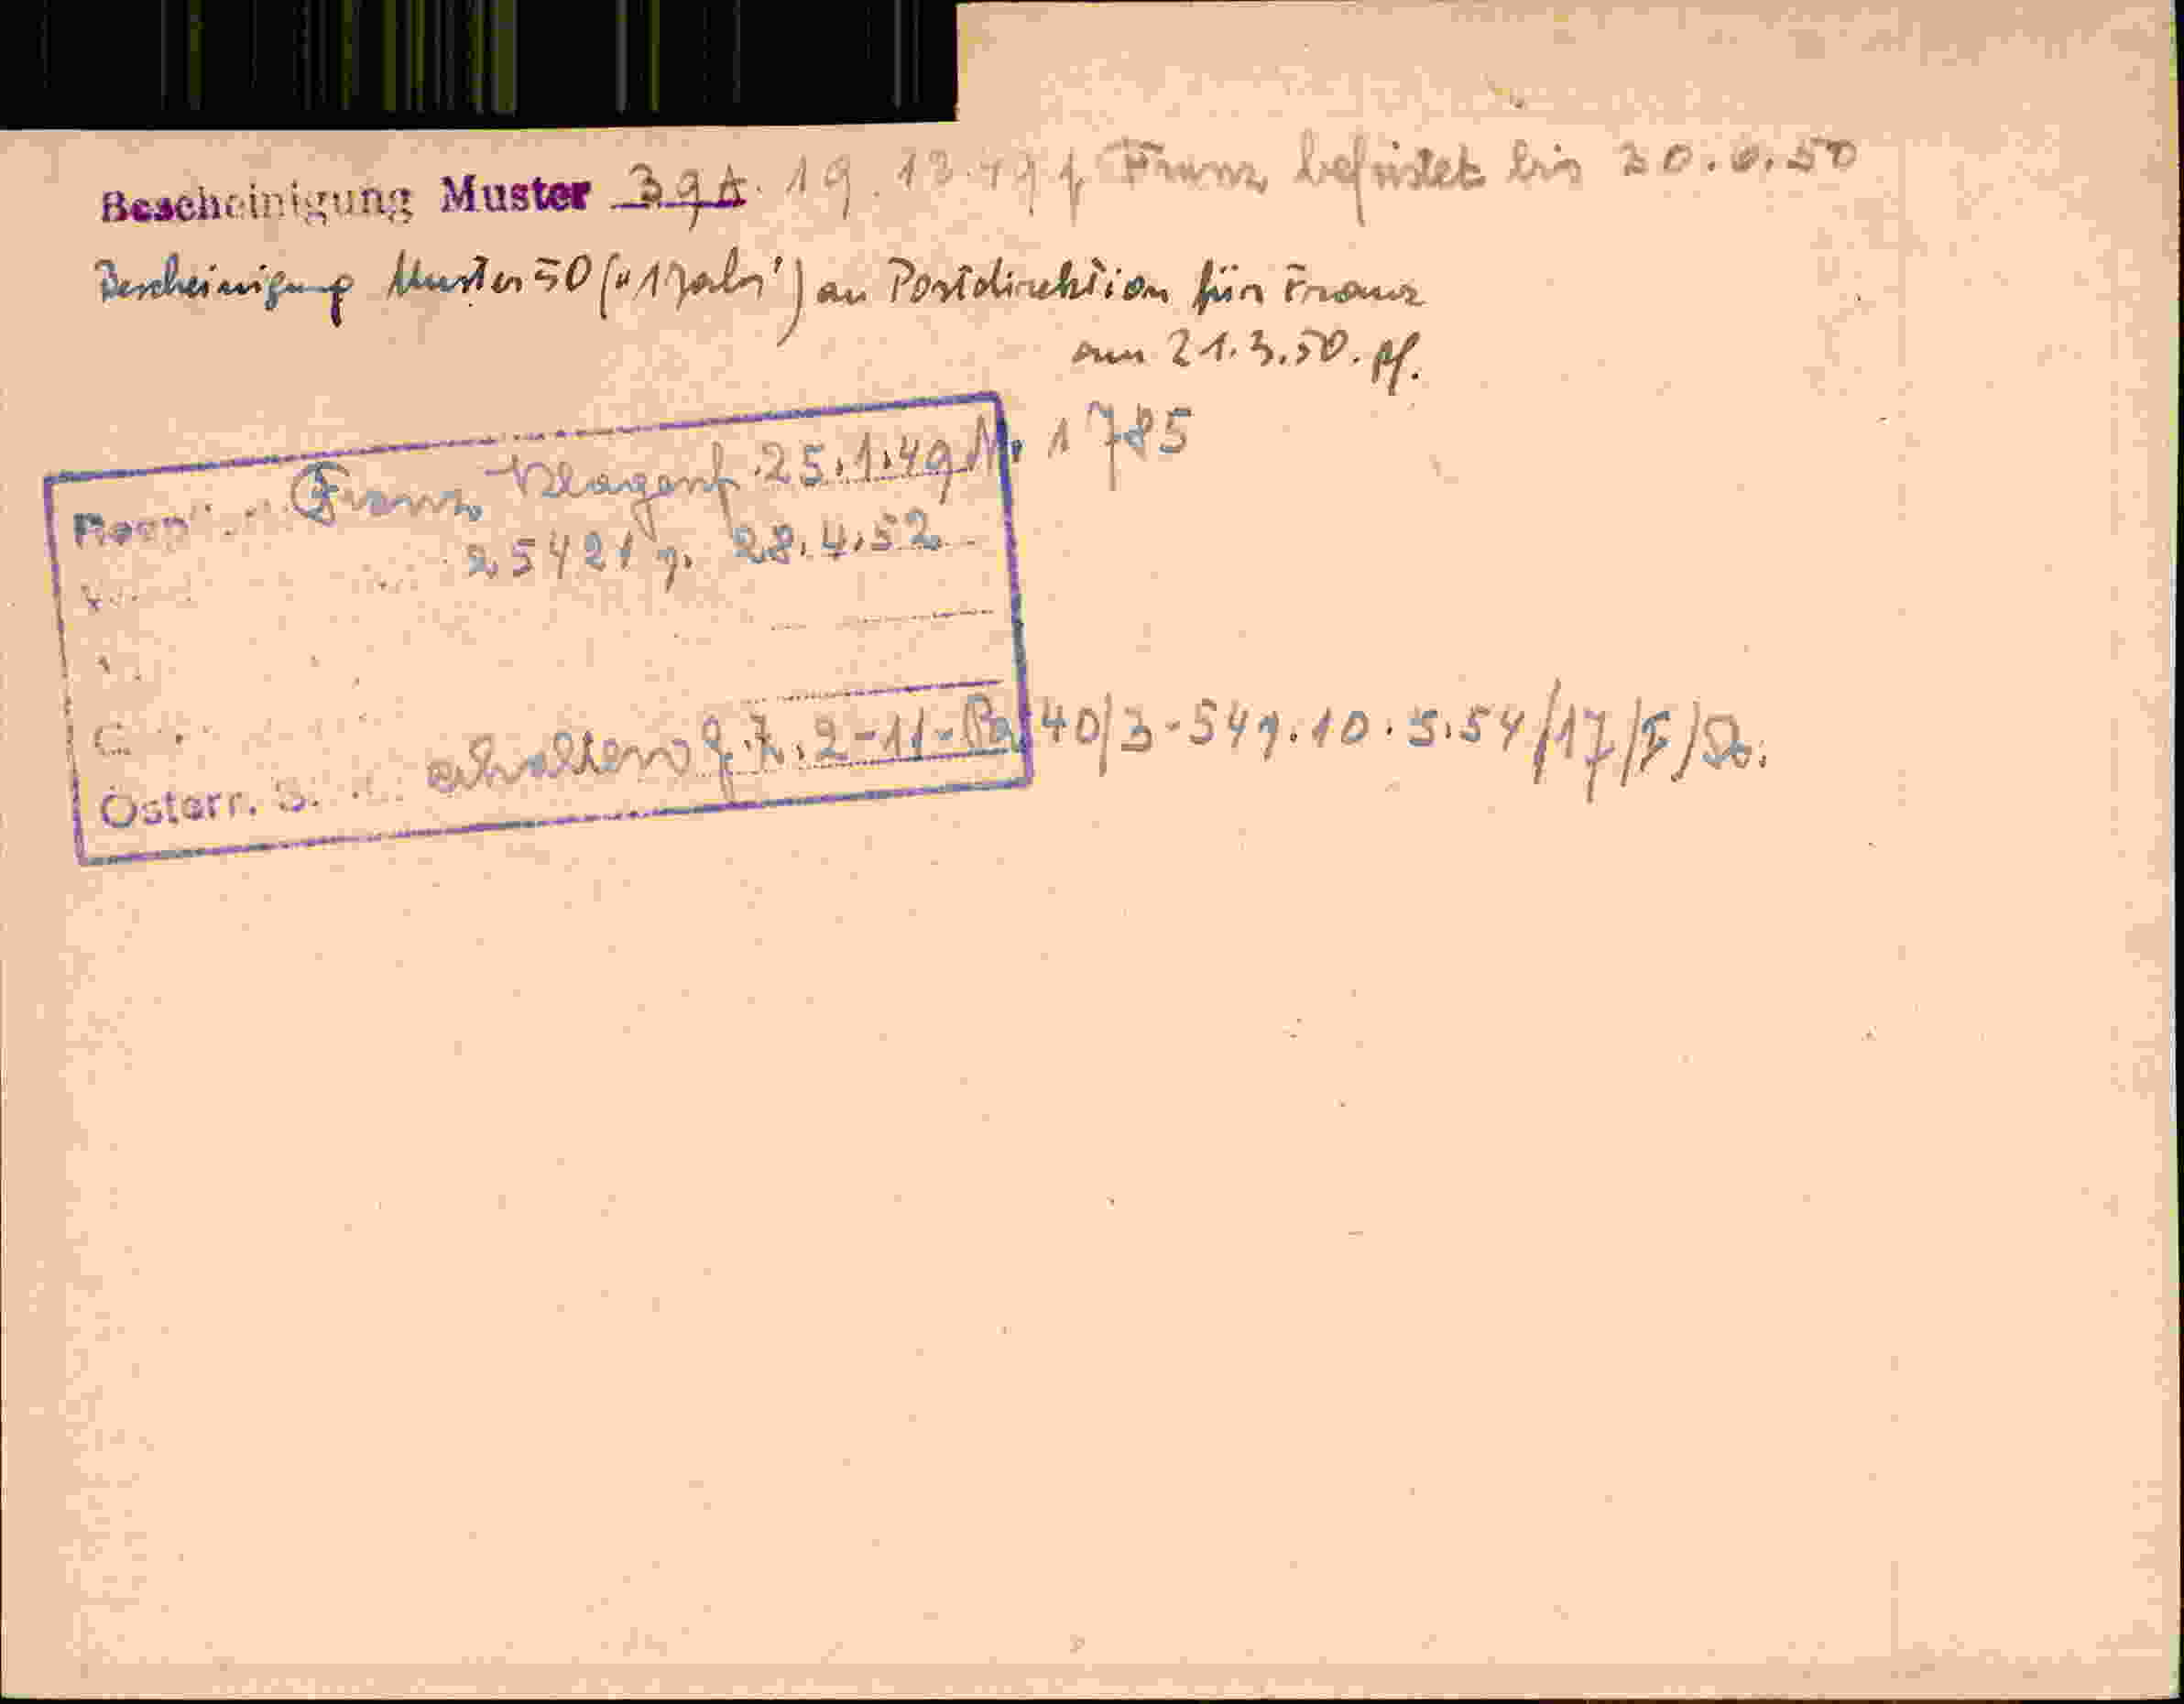 Bescheinigung Muster 39A. 19.12.49 f. Franz befristet bis 30.6.50
Bescheinigung Muster 50 ("1 Jahr") an Postdirektion für Franz
am 21.3.50. pf.
Franz Klagenf. 25.1.49 Nr. 1785
25421 v. 28.4.52
Österr.
erhalten 2-11-Pa 40/3-54 v. 10.5.54/17/5/